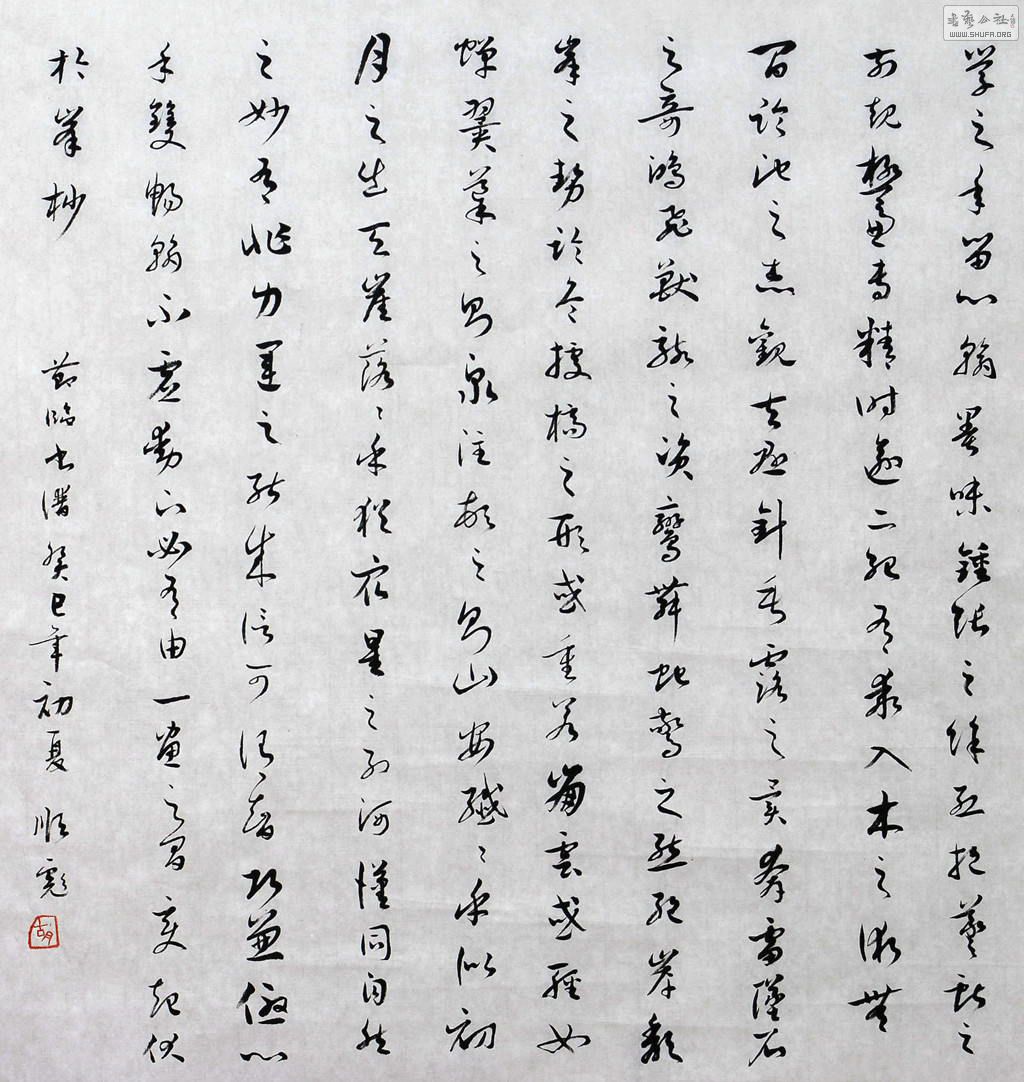 學之年留心翰墨味鍾張之餘烈挹羲獻之
前規極慮專精時逾二紀有乖入木之術無
間臨池之志觀夫懸針垂露之異奔雷墜石
之奇鴻飛獸駭之資鸞舞蛇驚之態絕岸頹
峯之勢臨危據槁之形或重若崩雲或輕如
蟬翼導之則泉注頓之則山安纖〻乎似初
月之出天崖落〻乎猶眾星之列河漢同自然
之妙有非力運之能成信可謂智巧兼優心
手雙暢翰不虛動下必有由一畫之間變起伏
於峯杪 節臨書譜癸巳年初夏 順彪
胡
书艺公社
WWW.SHUFA.ORG